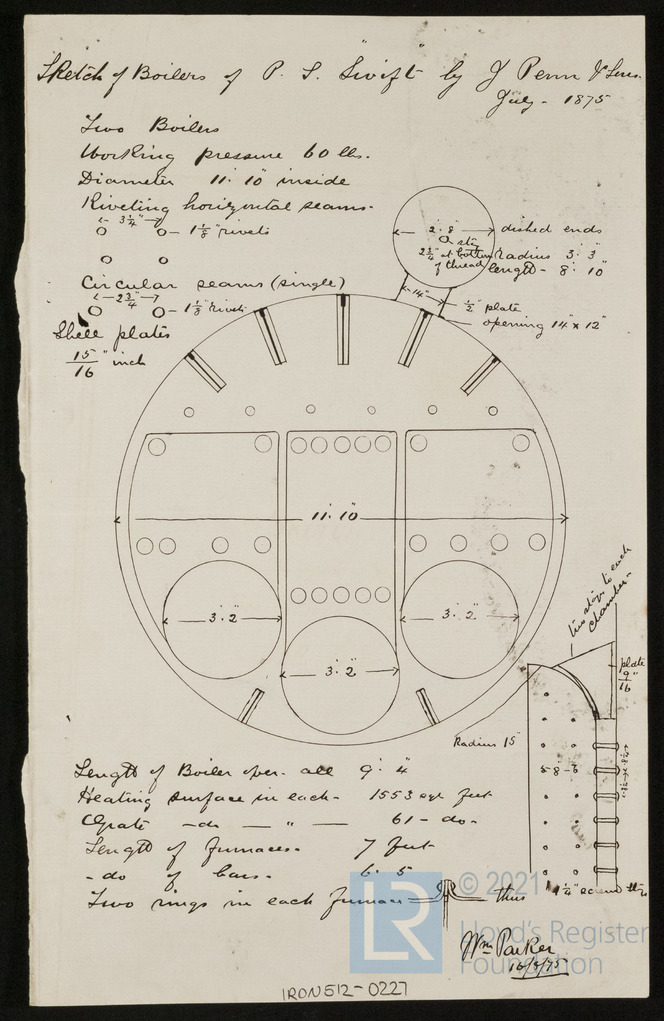 Sketch of Boilers of P. S. "Swift" by J Penn & Sons.
July - 1875
Two Boilers
Working pressure 60 lbs.
Diameter 11' 10" inside
Riveting horizontal seams.
3 1/4"
1 1/8" rivets
Circular seams (single)
2 3/4"
1 1/8" rivets
Shell plates
15/16" inch
2' 8"
stay
2 3/4" at bottom
of thread
dished ends
Radius 3' 3"
length - 8' 10"
14"
1/2" plate
opening 14" x 12"
11' 10"
3' 2"
3' 2"
3' 2"
two stays to each
chamber -
plate
9/16"
Radius 15"
Length of Boiler over all 9' 4"
Heating surface in each - 1553 sqr feet
Grate - do - " - 61 - do -
Length of furnaces - 7 feet
- do of bars - 6' 5
Two rings in each furnace thus
1 1/4" screw
Wm Parker
16/8/75
© 2021
LR
Lloyd's Register
Foundation
IRON512-0227